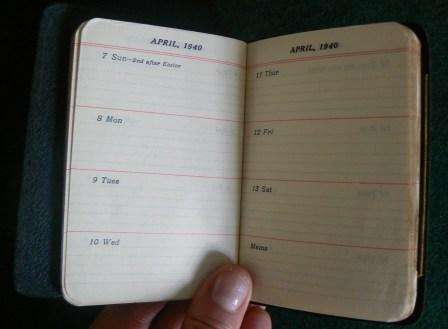 APRIL, 1940
7 Sun—2nd after Easter
8 Mon
9 Tues
10 Wed
APRIL, 1940
11 Thur
12 Fri
13 Sat
Mema